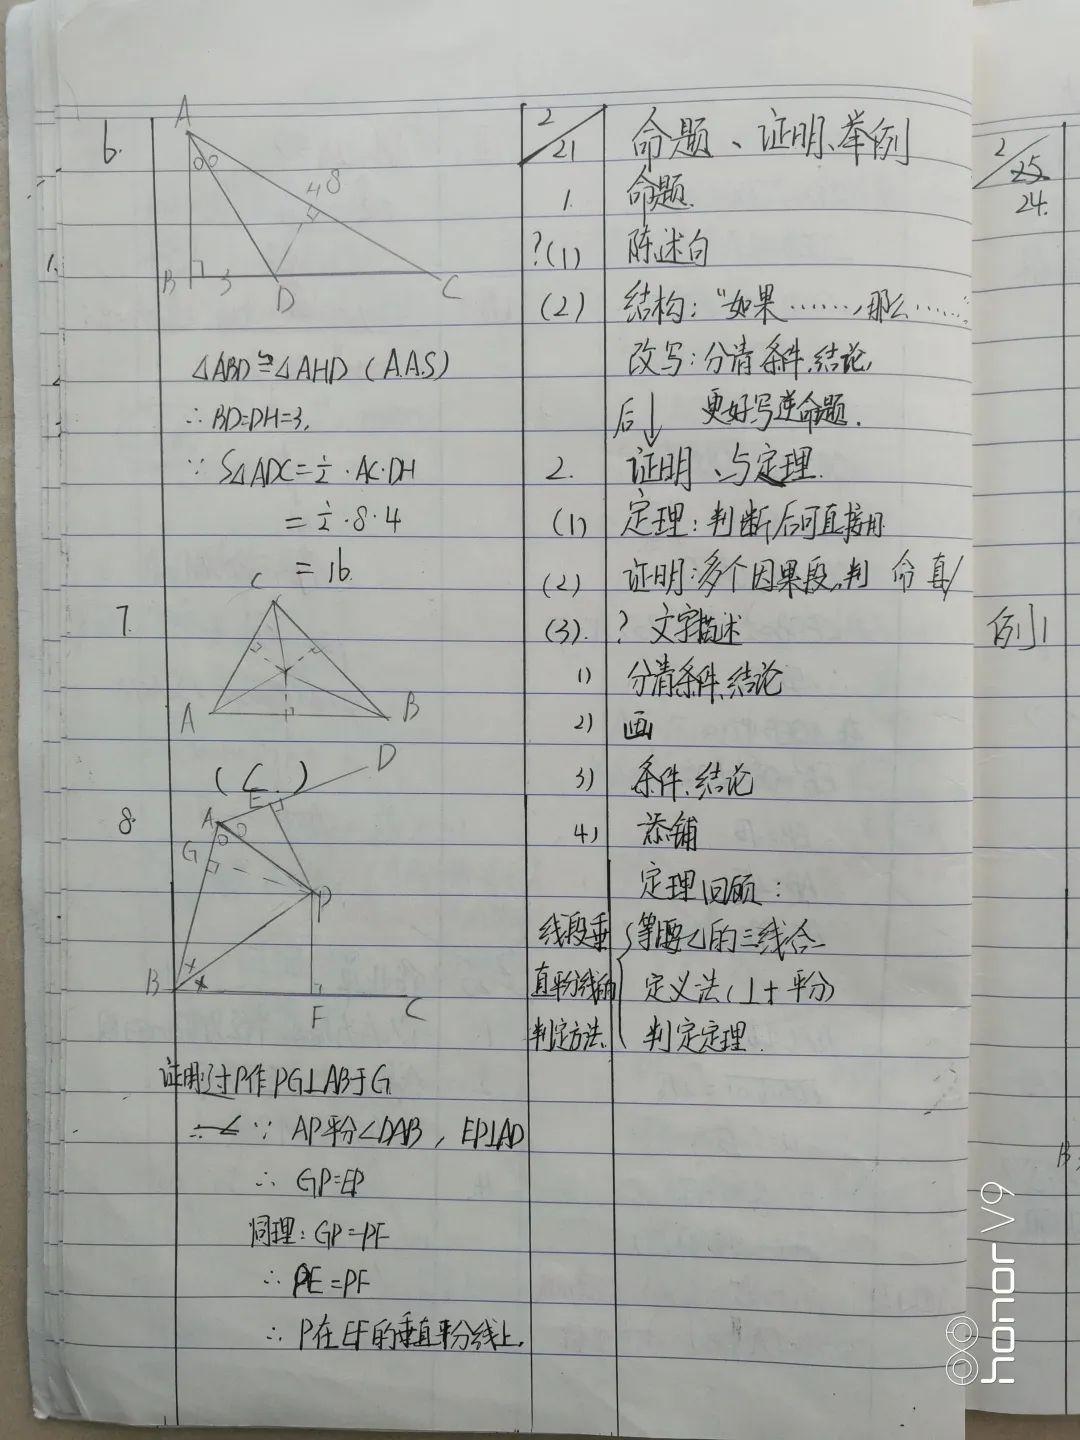 6.
A
4 8
B 3 D C
△ABD≌△AHD (A.A.S)
∴ BD=DH=3.
∵ S△ADC=½·AC·DH
=½·8·4
= 16
7.
C
A B
(C)
8.
D
E
A
G
P
B F C
证明:过P作PG⊥AB于G
∵ AP平分∠DAB, EP⊥AD
∴ GP=EP
同理: GP=PF
∴ PE=PF
∴ P在EF的垂直平分线上.
2/21 命题、证明、举例
1. 命题.
?(1) 陈述句
(2) 结构: “如果……, 那么……”
改写: 分清条件、结论,
后↓ 更好写逆命题.
2. 证明、与定理.
(1) 定理: 判断后可直接用
(2) 证明: 多个因果段, 判 命 真/
(3). ? 文字描述
1) 分清条件、结论
2) 画
3) 条件、结论
4) 添铺
定理回顾:
线段垂直平分线的判定方法.
等腰△的三线合一
定义法(⊥+平分)
判定定理.
2/25
24.
例1
B
honor V9